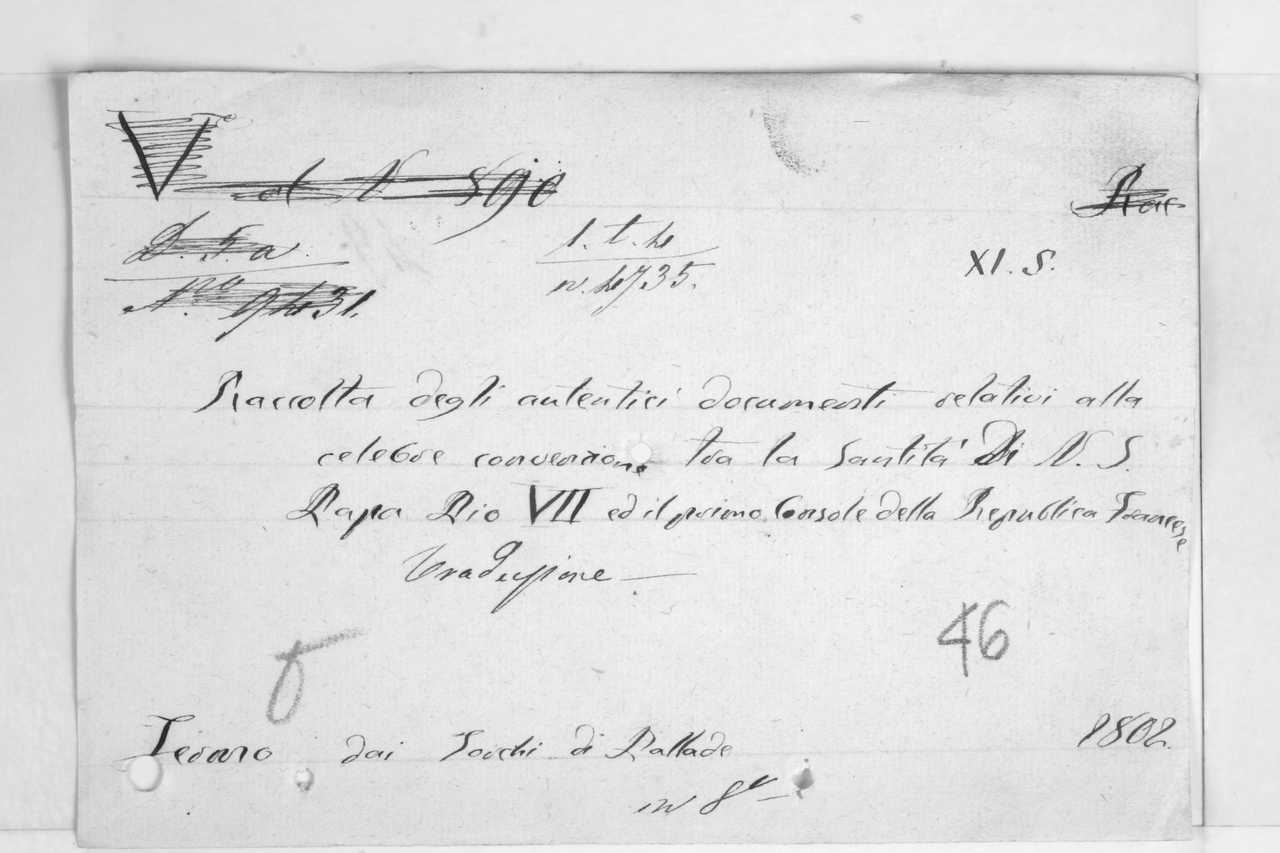 V
XI. S.
Raccolta degli autentici documenti relativi alla
celebre convenzione tra la Santità Di N. S.
Papa Pio VII ed il primo Console della Republica Francese
Traduzione —
46
Teramo dai Torchi di Pallade 1802.
in 8º —